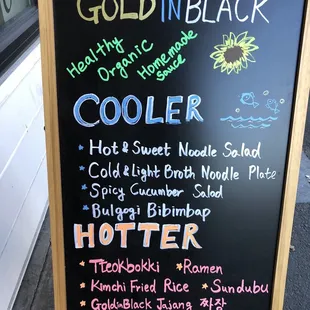 GOLD IN BLACK
Healthy
Organic
Homemade
Sauce
COOLER
* Hot & Sweet Noodle Salad
* Cold & Light Broth Noodle Plate
* Spicy Cucumber Salad
* Bulgogi Bibimbap
HOTTER
* Tteokbokki * Ramen
* Kimchi Fried Rice * Sundubu
* GoldinBlack Jajang 짜장